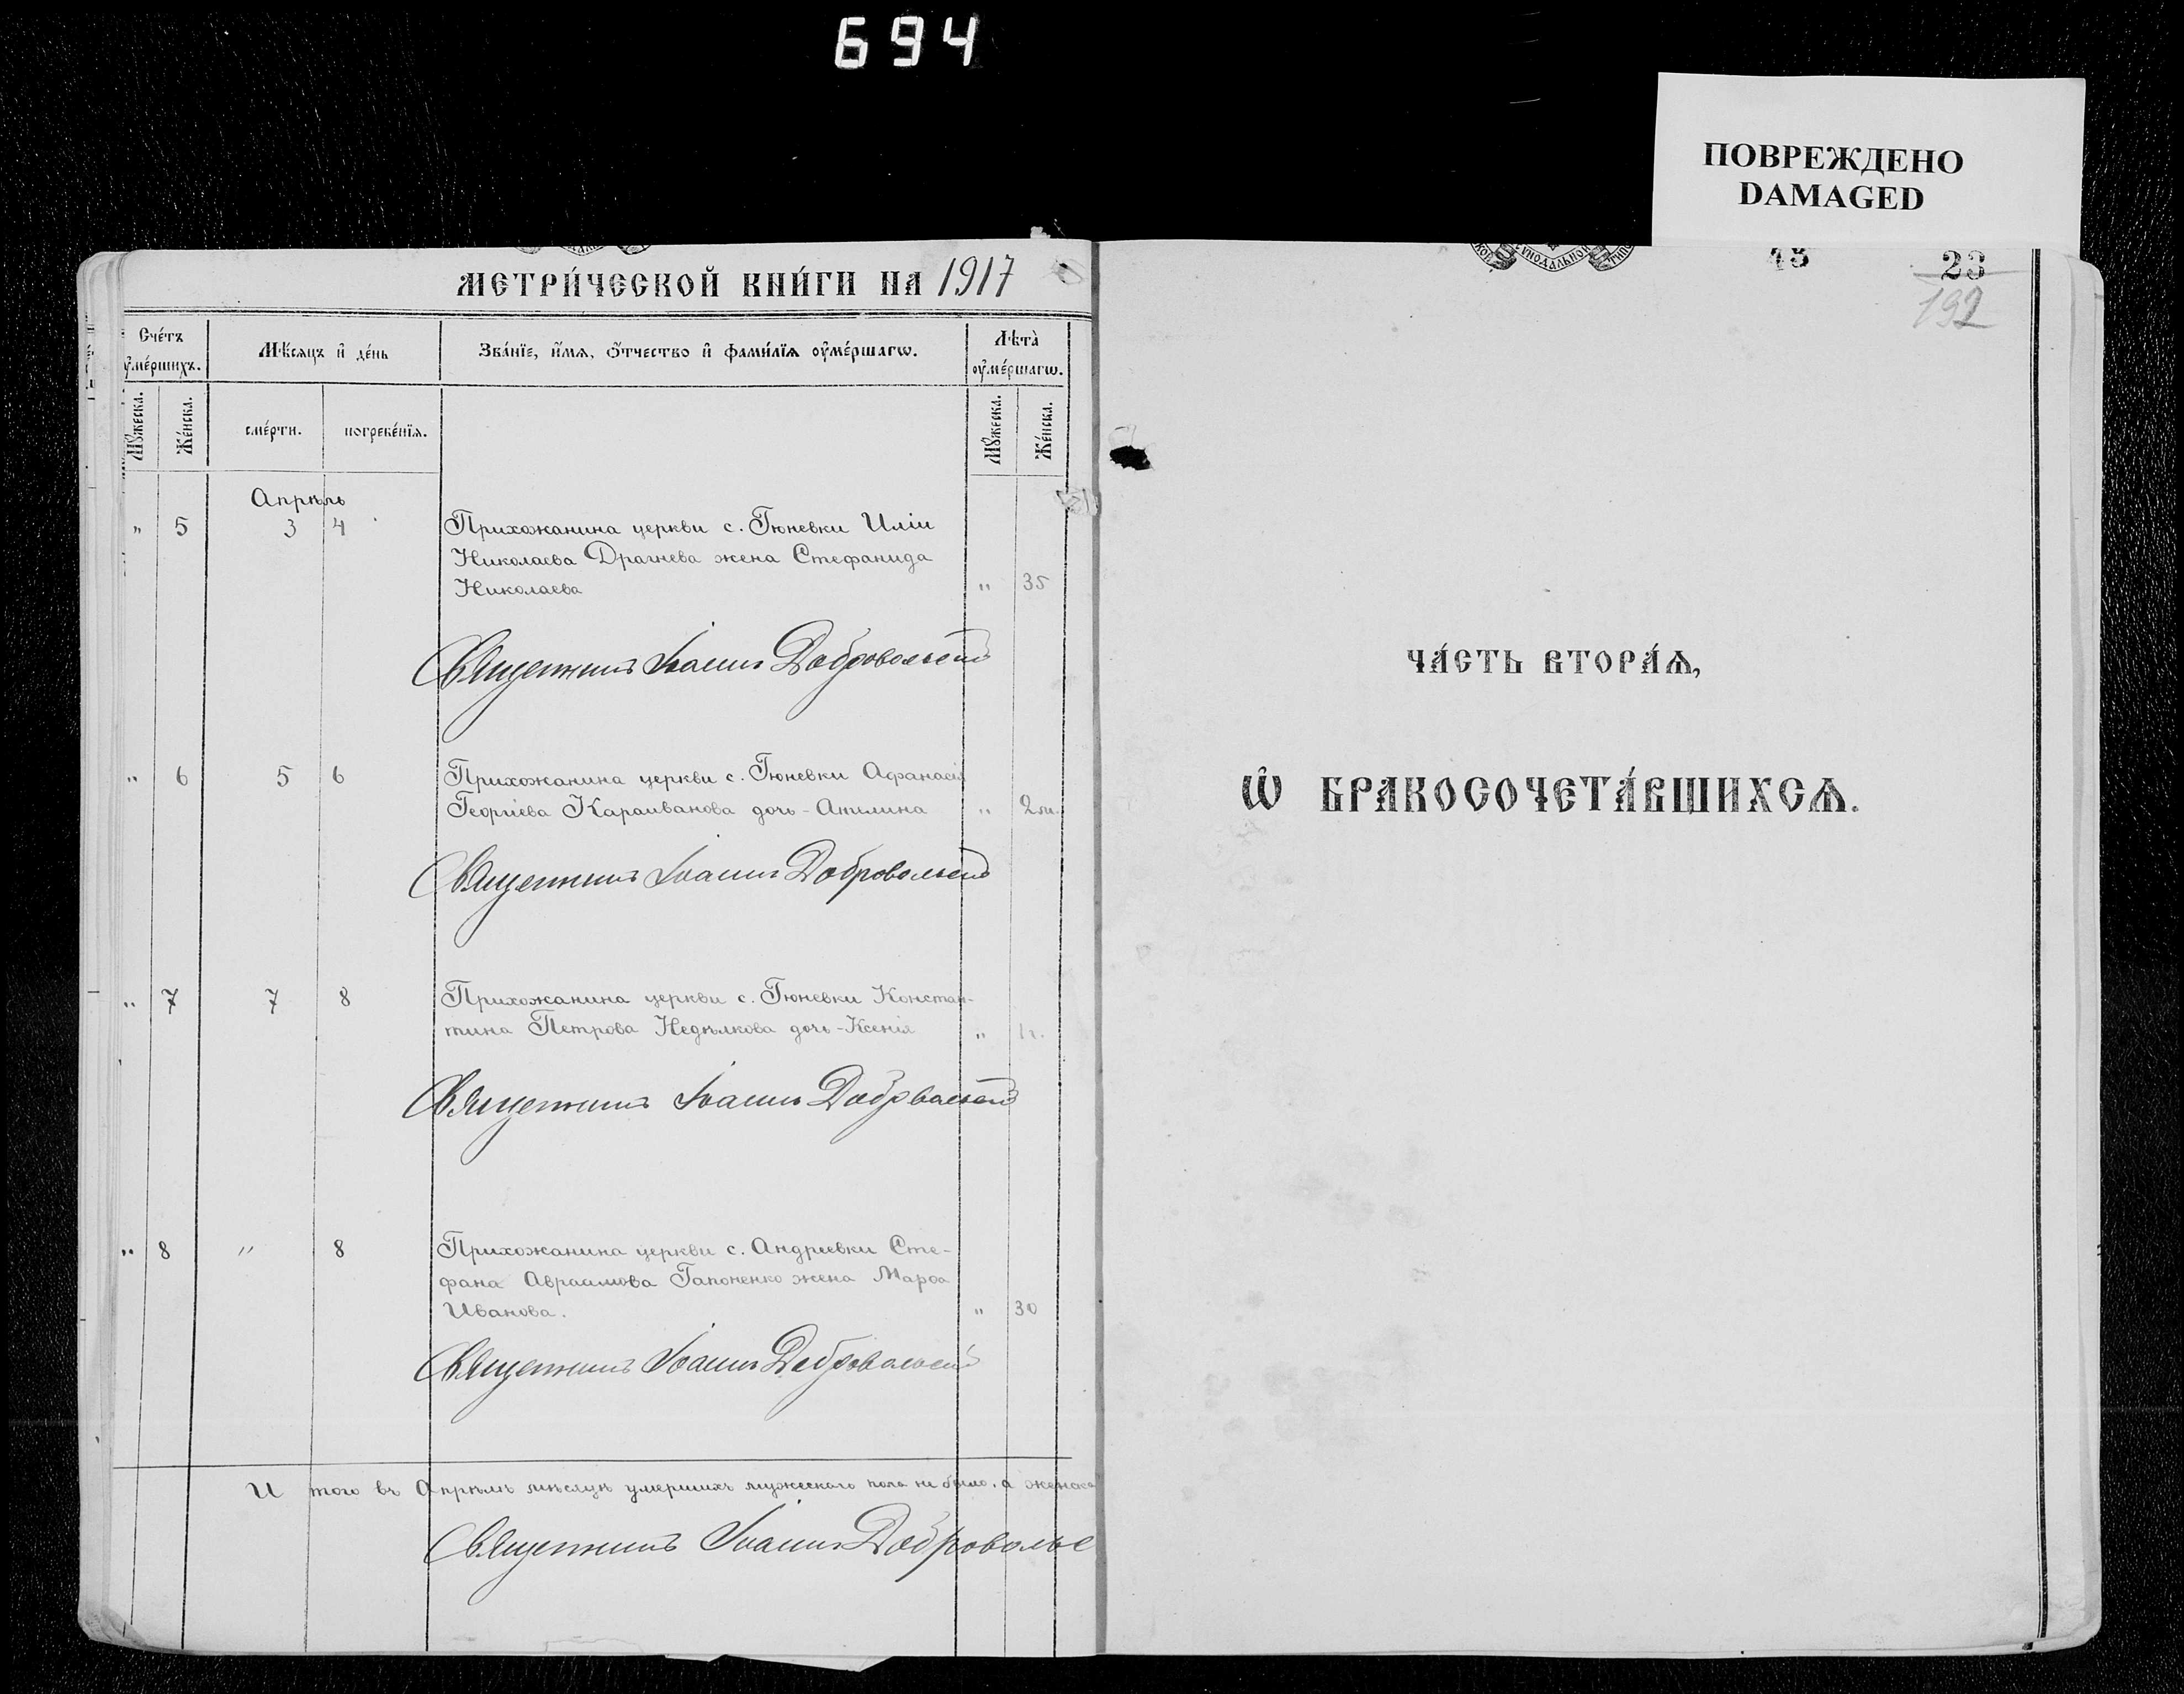 694
ПОВРЕЖДЕНО
DAMAGED
МЕТРИ́ЧЕСКОЙ КНИ́ГИ НА 1917
Сче́тъ оу҆ме́ршихъ.
Мѣ́сяцъ и҆ де́нь
Зва́нїе, и҆́мя, ѻ҆́тчество и҆ фами́лїя оу҆ме́ршагѡ.
Лѣта̀ оу҆ме́ршагѡ.
Мꙋ́жеска.
Же́нска.
сме́рти.
погребе́нїя.
Мꙋ́жеска.
Же́нска.
Апрѣль
" 5 3 4 Прихожанина церкви с. Гюневки Иліи
Николаева Драгнева жена Стефанида
Николаева " 35
Священникъ Іоаннъ Добровольскій
" 6 5 6 Прихожанина церкви с. Гюневки Афанасія
Георгіева Караиванова дочь - Ангелина " 2 м.
Священникъ Іоаннъ Добровольскій
" 7 7 8 Прихожанина церкви с. Гюневки Констан-
тина Петрова Недѣлкова дочь - Ксенія " 1 г.
Священникъ Іоаннъ Добровольскій
" 8 " 8 Прихожанина церкви с. Андреевки Сте-
фана Авраамова Гапоненко жена Марѳа
Иванова. " 30
Священникъ Іоаннъ Добровольскій
И того въ Апрѣлѣ мѣсяцѣ умершихъ мужескаго пола не было, а женска
Священникъ Іоаннъ Добровольс
23
192
ЧА́СТЬ ВТОРА́Ѧ,
Ѽ БРАКОСОЧЕТА́ВШИХСѦ.